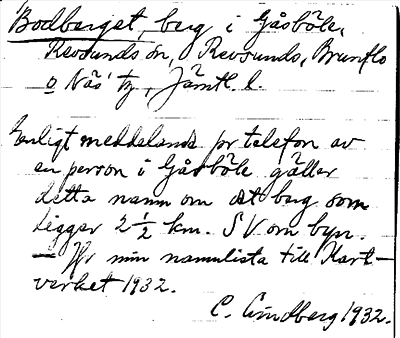 Bodberget, berg i Gåsböle,
Revsunds sn, Revsunds, Brunflo
o Näs' tg, Jämtl. l.
Enligt meddelande pr telefon av
en person i Gåsböle gäller
detta namn om det berg som
ligger 2 1/2 km. SV om byn.
— Ur min namnlista till Kart-
verket 1932.
C. Lindberg 1932.